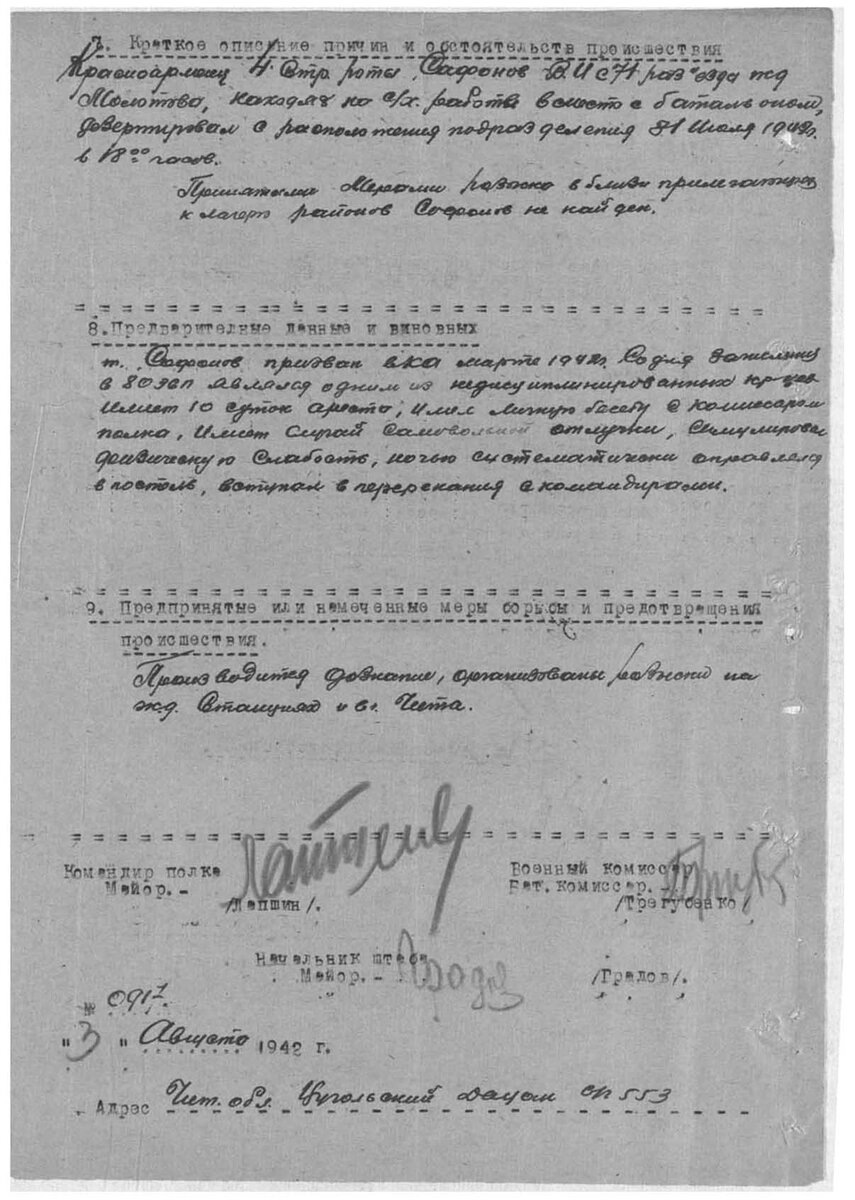 7. Краткое описание причин и обстоятельств происшествия
Красноармеец 4 Стр. роты, Сафонов В.И с 71 раз"езда жд
Молотово, находяс на с/х. работе вместе с батальоном,
дезертировал с расположения подразделения 31 Июля 1942г.
в 18 00 часов.
Принятыми Мерами розыска в близи прилегающих
к лагерю районов Сафонов не найден.
8. Предварительные данные и виновных
т. Сафонов призван в КА марте 1942г. Со дня зачисления
в 80 зсп являлся одним из недисциплинированных кр-цев
Имеет 10 суток ареста, имел личную беседу с комиссаром
полка, Имеет случай Самовольной отлучки, Симулировал
физическую Слабость, ночью систематически оправлялся
в постель, вступал в перерекания с командирами.
9. Предпринятые или намеченные меры борьбы и предотвращения
происшествия.
Производится дознание, организованы розыски на
ж.д. Станциях и в г. Чита.
Командир полка
Майор. -
/Лапшин/.
Военный комиссар
Бат. Комиссар. -
/Трегубенко/
Начальник штаба
Майор. -
/Градов/.
№ 0917.
"3" Августа 1942 г.
Адрес Чит. обл. Цугольский дацан сп 553